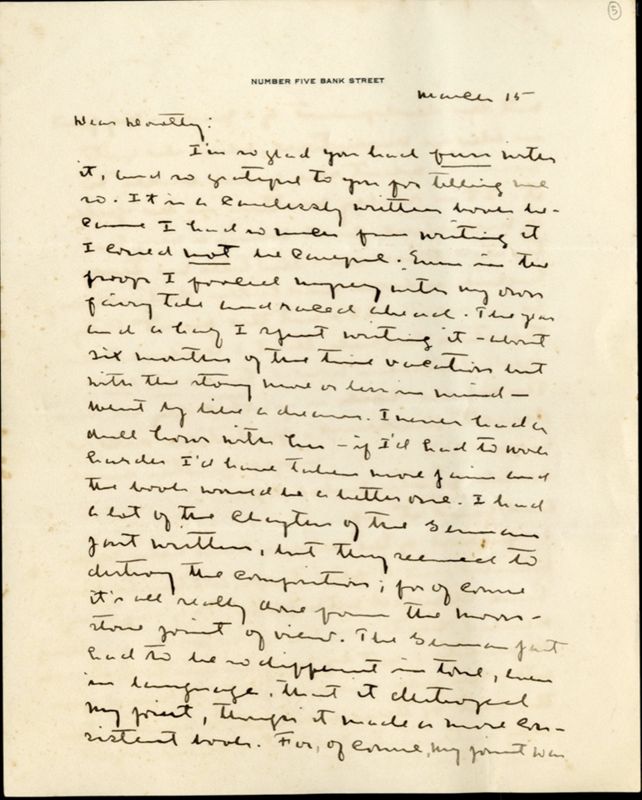 5
NUMBER FIVE BANK STREET
March 15
Dear Dorothy:
I'm so glad you had fun with
it, and so grateful to you for telling me
so. It is a carelessly written book be-
cause I had so much fun writing it
I could not be careful. Even in the
proofs I fooled myself with my own
fairy tale and raced ahead. The year
and a half I spent writing it - about
six months of the time vacation but
with the story more or less in mind -
went by like a dream. I never had a
dull hour with her - if I'd had to work
harder I'd have taken more pains and
the book would be a better one. I had
a lot of the chapters of the German
part written, but they seemed to
destroy the composition; for of course
it's all really done from the Moon-
stone point of view. The German part
had to be so different in tone, even
in language, that it destroyed
my point, though it made a more con-
sistent book. For, of course, my point was